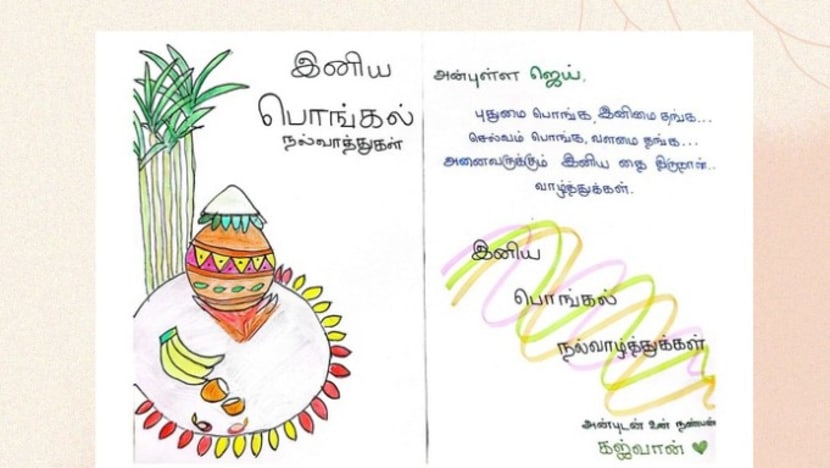 இனிய
பொங்கல்
நல்வாத்துகள்
அன்புள்ள ஜெய்,
புதுமை பொங்க, இனிமை தங்க...
செல்வம் பொங்க, வளமை தங்க...
அனைவருக்கும் இனிய தை திருநாள்..
வாழ்த்துக்கள்.
இனிய
பொங்கல்
நல்வாழ்த்துக்கள்
அன்புடன் உன் நண்பன்
கஜ்வான்